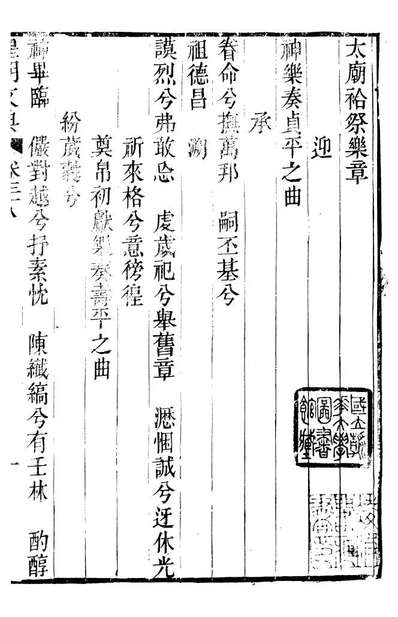 太廟祫祭樂章
迎
神樂奏貞平之曲
承
眷命兮撫萬邦　嗣丕基兮
祖德昌　溯
謨烈兮弗敢忘　虔歲祀兮舉舊章　瀝悃誠兮迓休光
祈來格兮意徬徨
奠帛初獻樂奏壽平之曲
紛葳蕤兮
神畢臨　儼對越兮抒素忱　陳纖縞兮有壬林　酌醇
皇朝文典　一
國立清華大學圖書館藏